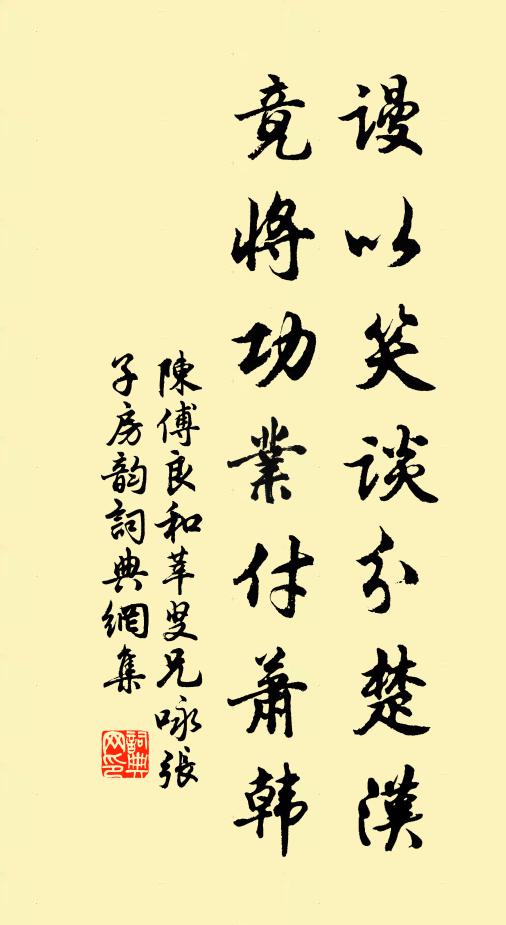 謾以笑談分楚漢
竟將功業付蕭韓
陳傅良和莘叟兄咏張
子房韵詞典網集
詞典
网印